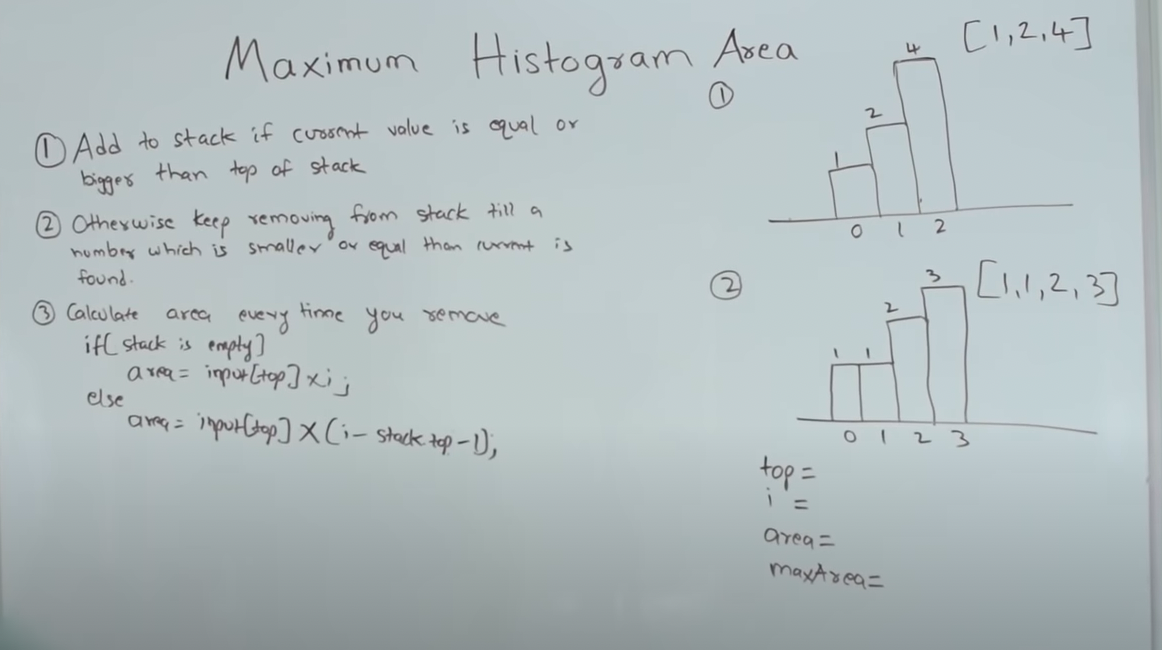 Maximum Histogram Area
① Add to stack if current value is equal or
bigger than top of stack
② Otherwise keep removing from stack till a
number which is smaller or equal than current is
found.
③ Calculate area every time you remove
if[ stack is empty]
area = input[top] x i;
else
area = input[top] X (i - stack top - 1);
①
[1,2,4]
4
2
1
0 1 2
②
[1,1,2,3]
3
2
1 1
0 1 2 3
top =
i =
area =
maxArea =